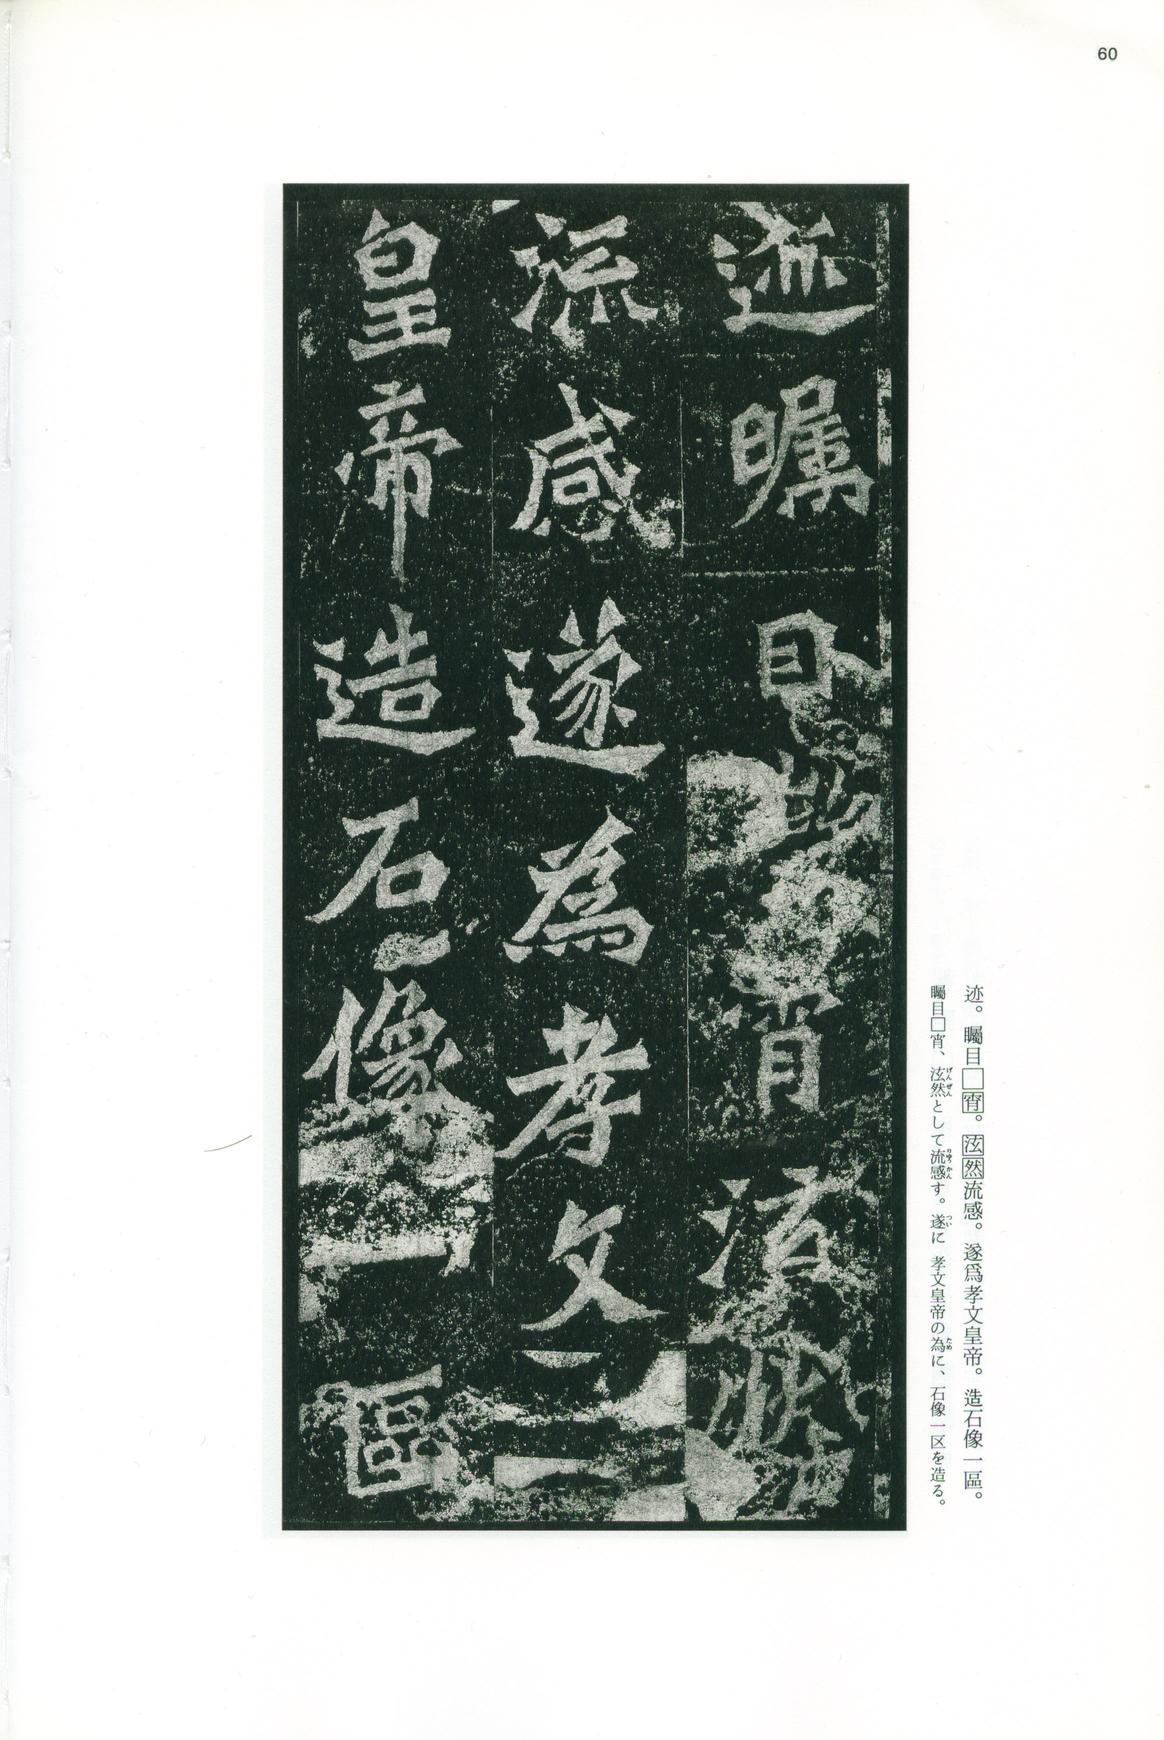 60
迹矚目□宵泫然
流感遂為孝文
皇帝造石像一區
迹。矚目□宵。泫然流感。遂爲孝文皇帝。造石像一區。
矚目□宵、泫然として流感す。遂に 孝文皇帝の為に、石像一区を造る。
げんぜん
りゅうかん
つい
ため